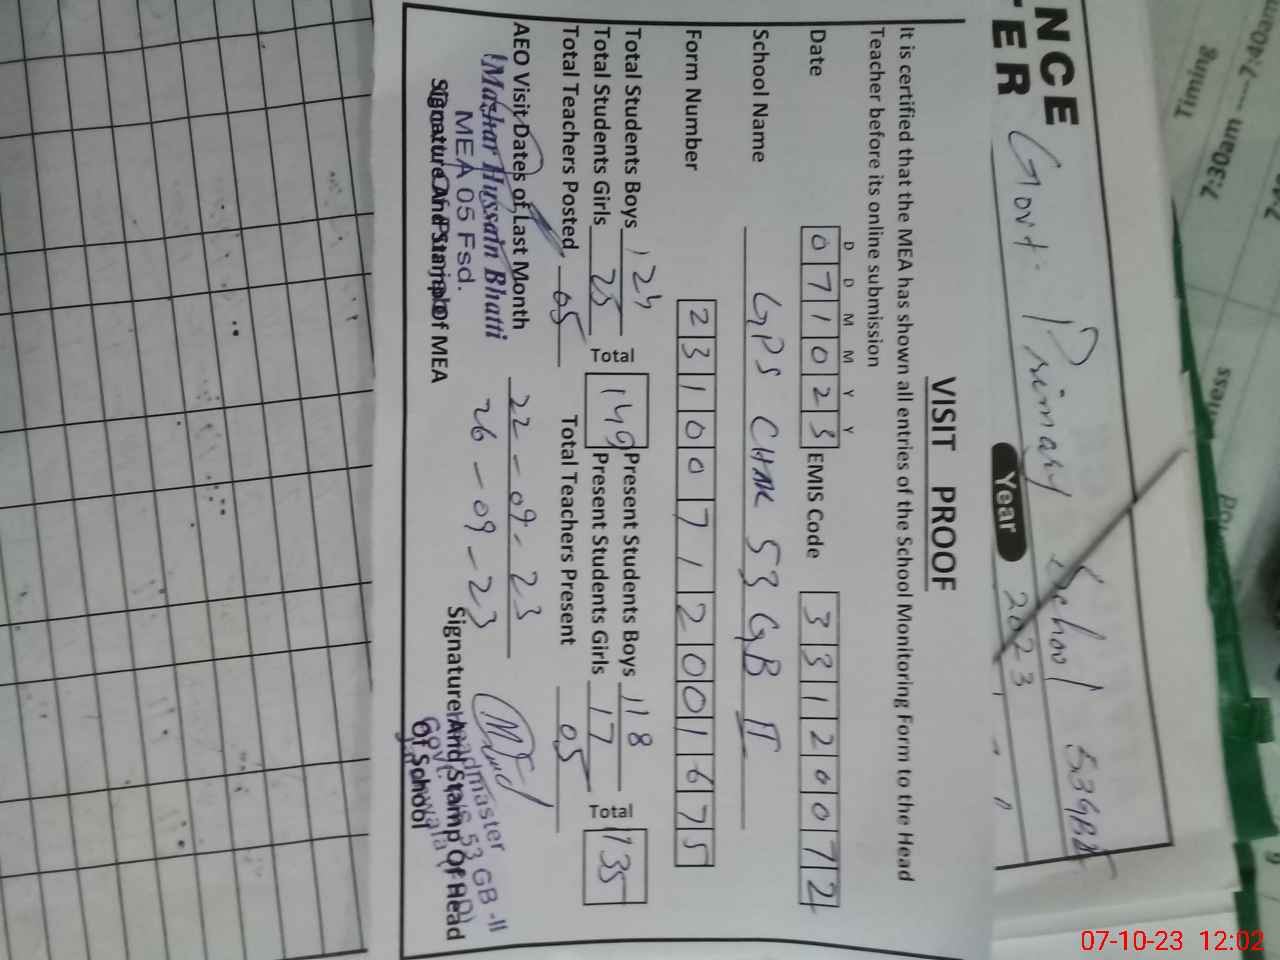 NCE
TER
Govt. Primary School 53GB II
Year 2023
VISIT PROOF
It is certified that the MEA has shown all entries of the School Monitoring Form to the Head
Teacher before its online submission
D D M M Y Y
Date 071023 EMIS Code 33120072
School Name GPS CHAK 53 GB II
Form Number 23100712001675
Total Students Boys 124 Present Students Boys 118
Total 149 Total 135
Total Students Girls 25 Present Students Girls 17
Total Teachers Posted 05 Total Teachers Present 05
AEO Visit Dates of Last Month 22-09-23
26-09-23
Mazhar Hussain Bhatti
MEA 05 Fsd.
Signature And Stamp of MEA
Signature And Stamp Of Head
Of School
Headmaster
53 GB-II
7:40am
7:30am
Timing
07-10-23 12:02